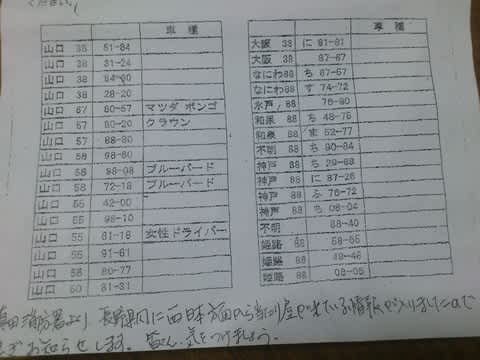 ください。
車種
山口 38 51-84
山口 38 31-24
山口 38 84-20
山口 38 28-20
山口 57 80-57 マツダ ボンゴ
山口 57 80-20 クラウン
山口 57 88-80
山口 58 98-60
山口 58 88-98 ブルーバード
山口 58 72-18 ブルーバード
山口 55 42-00
山口 55 98-10
山口 55 81-18 女性ドライバー
山口 55 91-61
山口 56 80-77
山口 50 81-31
車種
大阪 38 に 91-81
大阪 38 87-67
なにわ88 ち 67-57
なにわ88 す 74-72
水戸 88 76-80
和泉 88 ち 48-75
和泉 88 ま 52-77
不明 88 ち 90-84
神戸 88 ち 29-88
神戸 88 に 87-26
神戸 88 ふ 76-72
神戸 88 ち 08-04
不明 88-40
姫路 88 58-55
姫路 88 49-46
姫路 88 08-05
消防署より、長野県内に西日本方面から当り屋が来ている情報が入りましたので
お知らせします。皆さん、気をつけましょう。